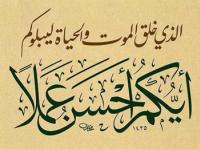 الذي خلق الموت والحياة ليبلوكم
أيكم أحسن عملا
١٤٣٥